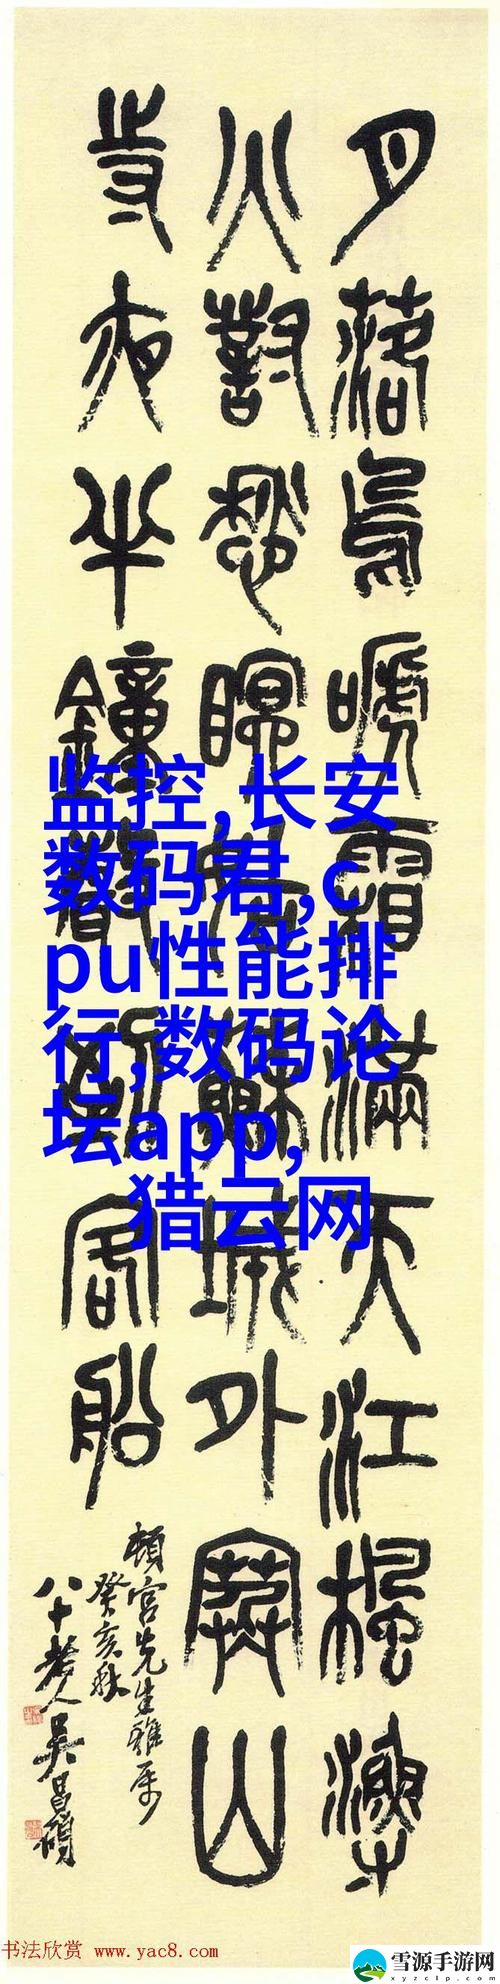 月落烏嗁霜滿天江楓漁
火對愁眠姑蘇城外寒山
寺夜半鐘聲到客船
頓宮先生雅属
癸亥秋
八十老人吳昌碩
监控,长安
数码君,c
pu性能排
行,数码论
坛app,
猎云网
书法欣赏 www.yac8.com
雪源手游网
xyzclp.com